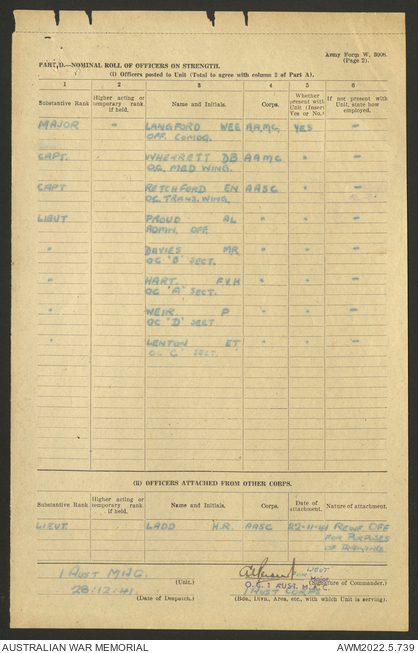 Army Form W. 3008.
(Page 2).
PART D.—NOMINAL ROLL OF OFFICERS ON STRENGTH.
(i) Officers posted to Unit (Total to agree with column 2 of Part A).
1 2 3 4 5 6
Substantive Rank Higher acting or temporary rank if held. Name and Initials. Corps. Whether present with Unit (Insert Yes or No.) If not present with Unit, state how employed.
MAJOR - LANGFORD WEE AAMC YES -
OFF. COMDG.
CAPT. WHERRETT DB AAMC " -
OC. MED WING.
CAPT RETCHFORD EN AASC " -
OC. TRANS. WING.
LIEUT PROUD AL " " -
ADMN. OFF.
" DAVIES MR " " -
OC "B" SECT.
" HART. F.V.H " " -
OC "A" SECT.
" WEIR. P " " -
OC "D" SECT
LENTON ET " " -
OC "C" SECT.
(ii) OFFICERS ATTACHED FROM OTHER CORPS.
Substantive Rank Higher acting or temporary rank if held. Name and Initials. Corps. Date of attachment. Nature of attachment.
LIEUT. LADD H.R. AASC 22-11-41 OFF
FOR PURPOSES
OF
1 AUST MAC. (Unit.)
LIEUT
Major
(Signature of Commander.)
O.C. 1 AUST. M.A.C.
28-12-41 (Date of Despatch.)
1 AUST CORPS
(Bde., Divn., Area, etc., with which Unit is serving).
AUSTRALIAN WAR MEMORIAL
AWM2022.5.739